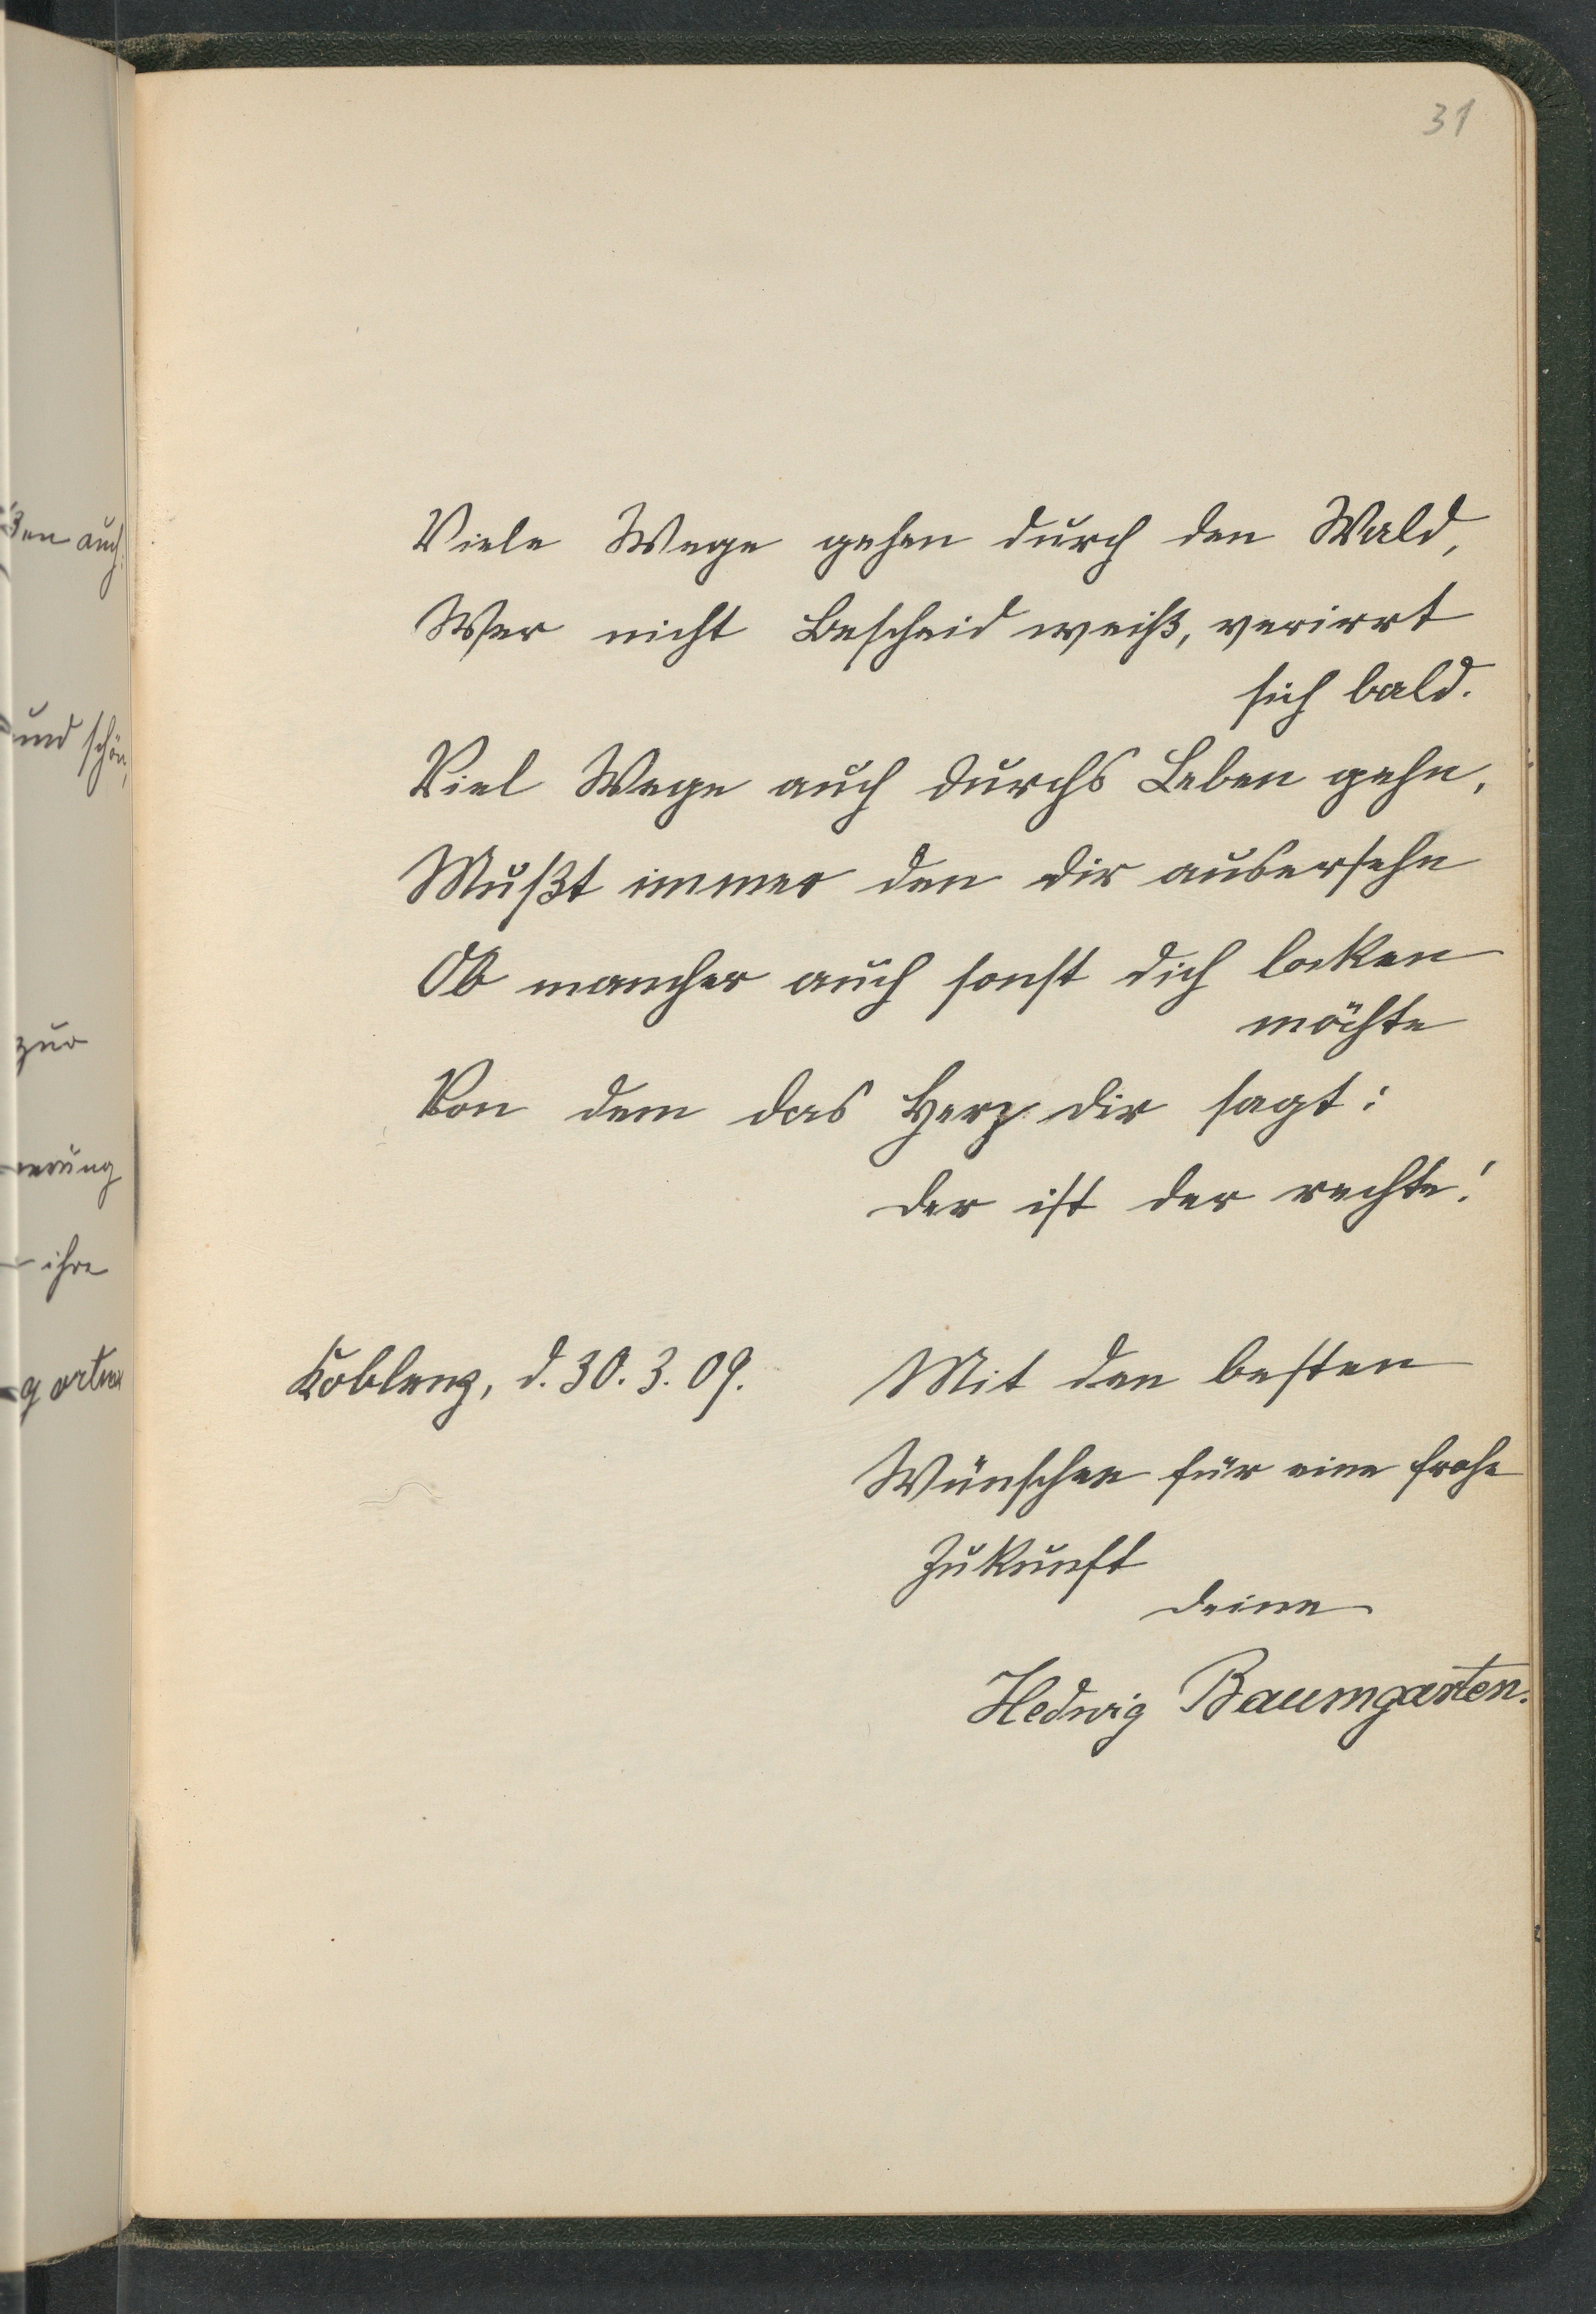 31
Viele Wege gehen durch den Wald,
Wer nicht Bescheid weiß, verirrt
sich bald.
Viel Wege auch durchs Leben gehn,
Mußt immer den dir ausersehn
Ob mancher auch sonst dich locken
möchte
Von dem das Herz dir sagt:
der ist der rechte!
Koblenz, d. 30. 3. 09.
Mit den besten
Wünschen für eine frohe
Zukunft
deine
Hedwig Baumgarten.
auch
und schön,
zur
ihre